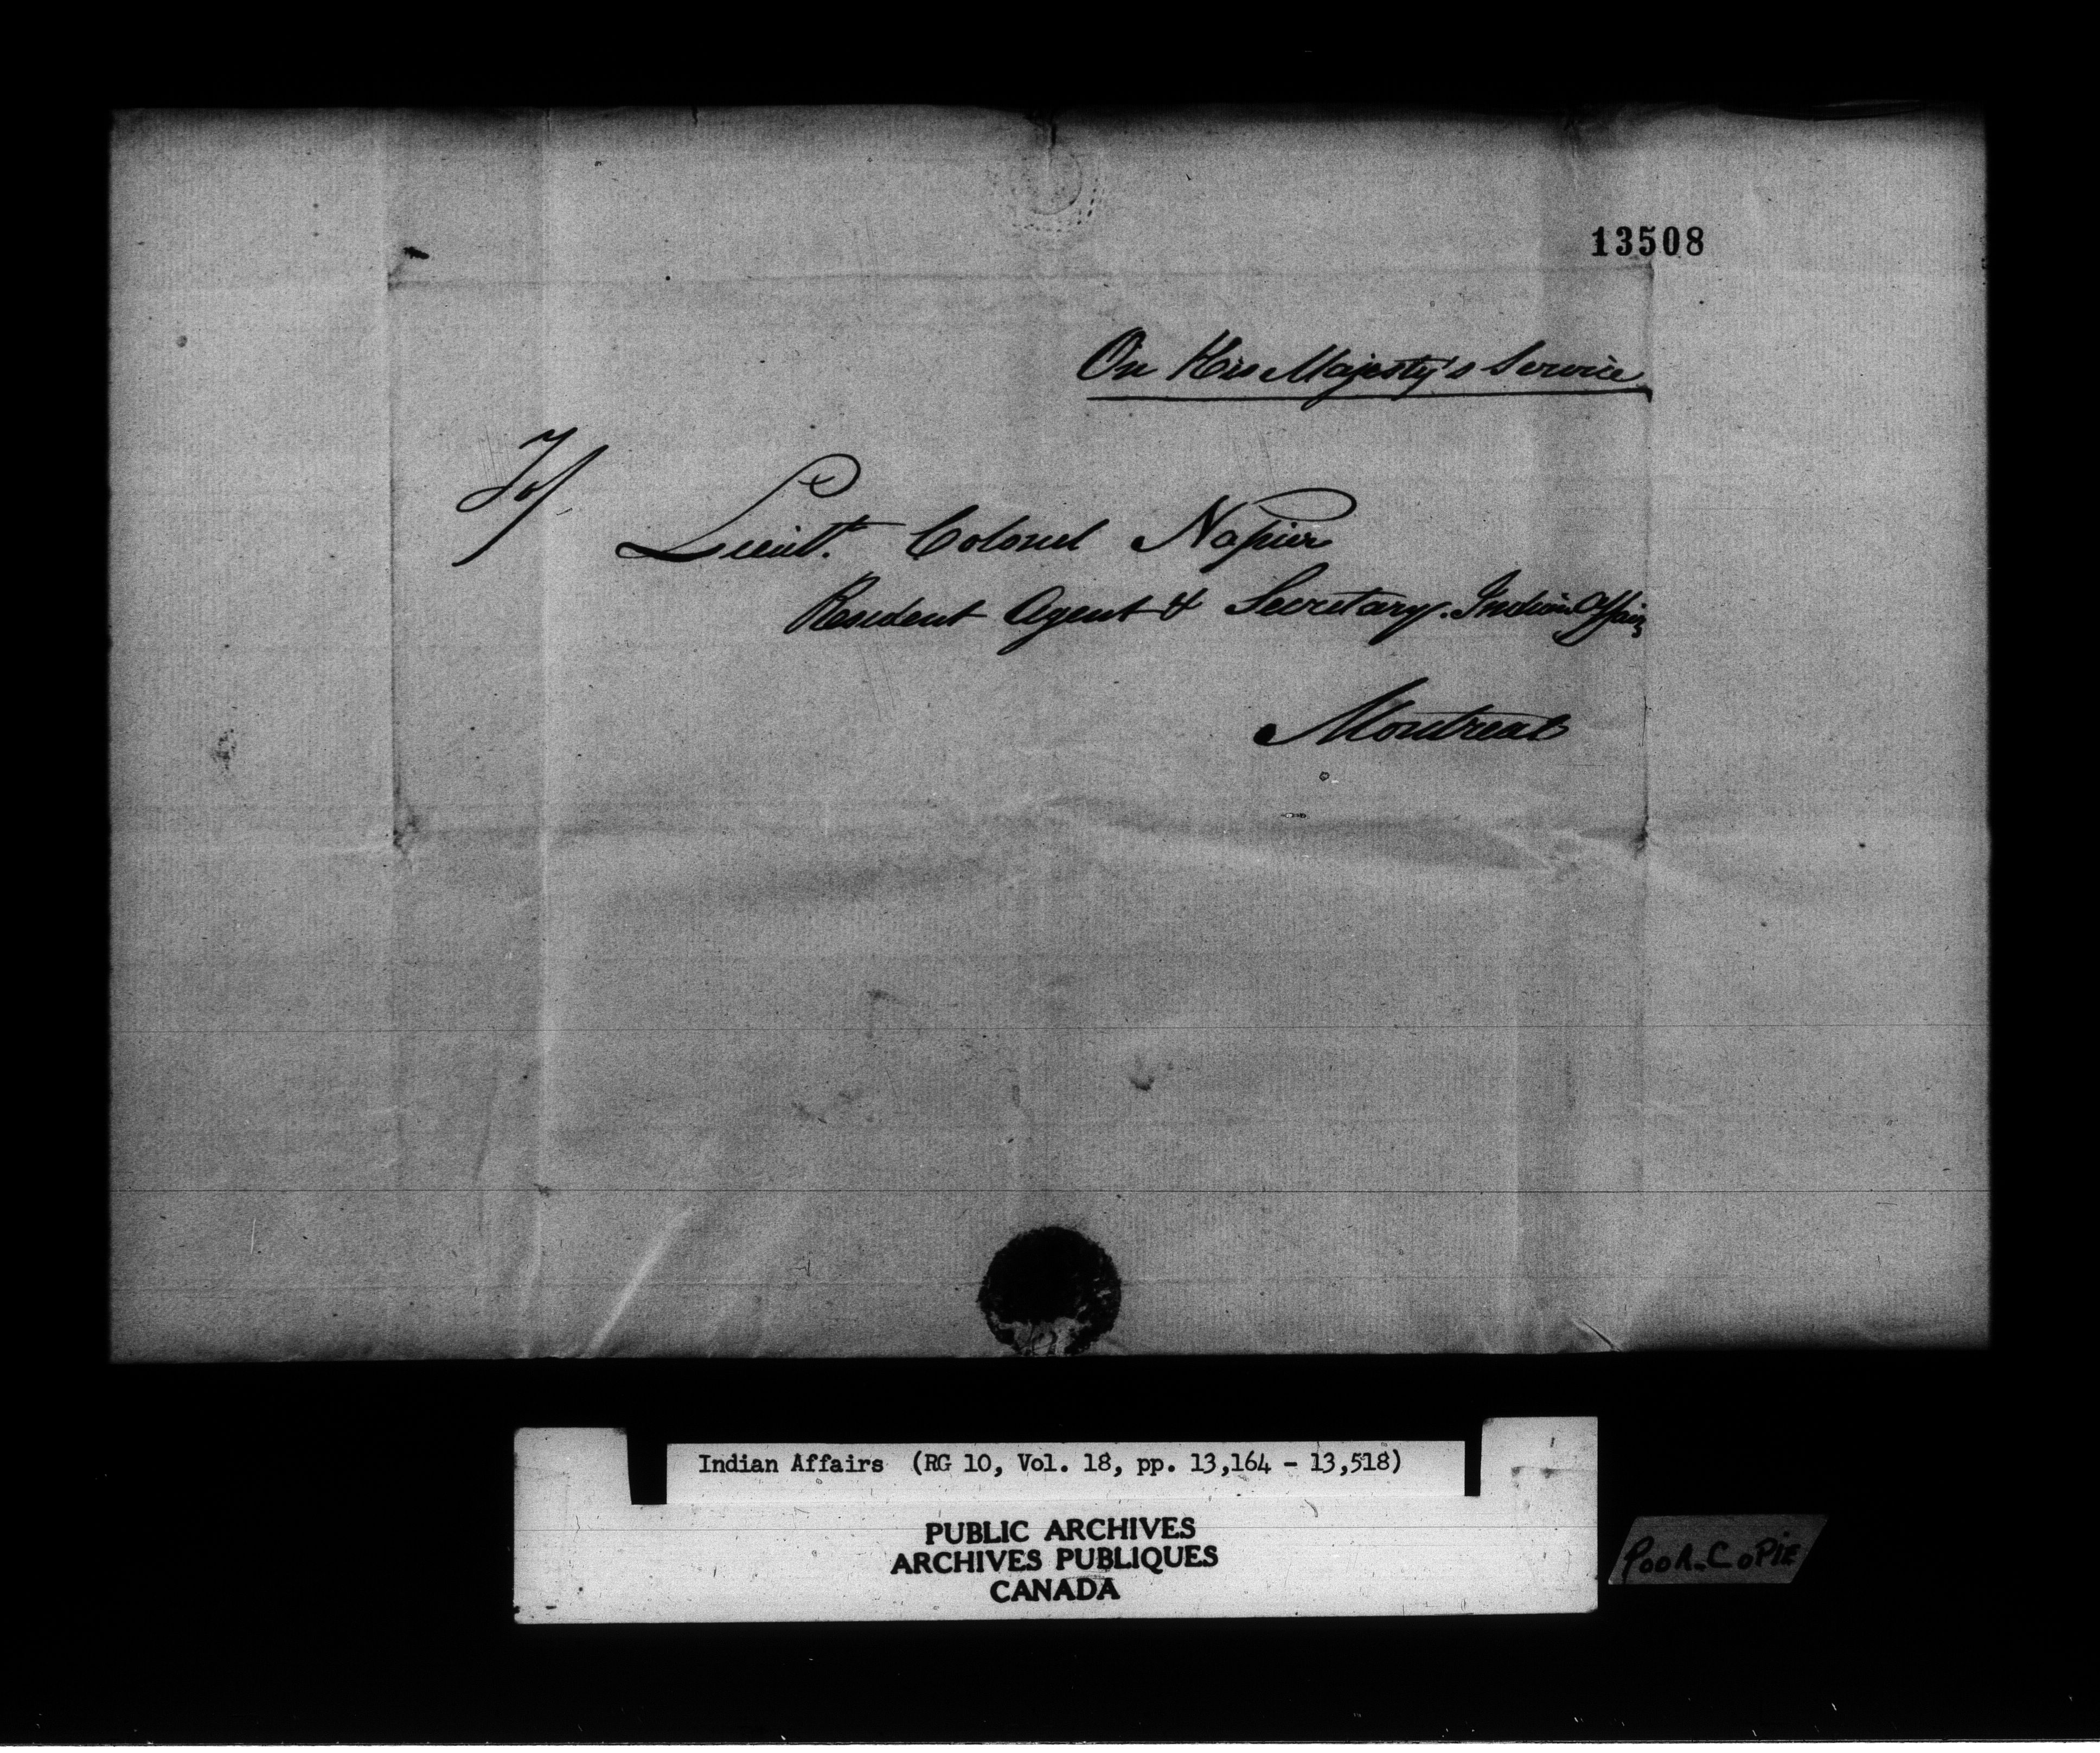 13508
On His Majesty's Service
To/
Lieut. Colonel Napier
Resident Agent & Secretary. Indian Affairs
Montreal
Indian Affairs (RG 10, Vol. 18, pp. 13,164 - 13,518)
PUBLIC ARCHIVES
ARCHIVES PUBLIQUES
CANADA
POOR-COPIE